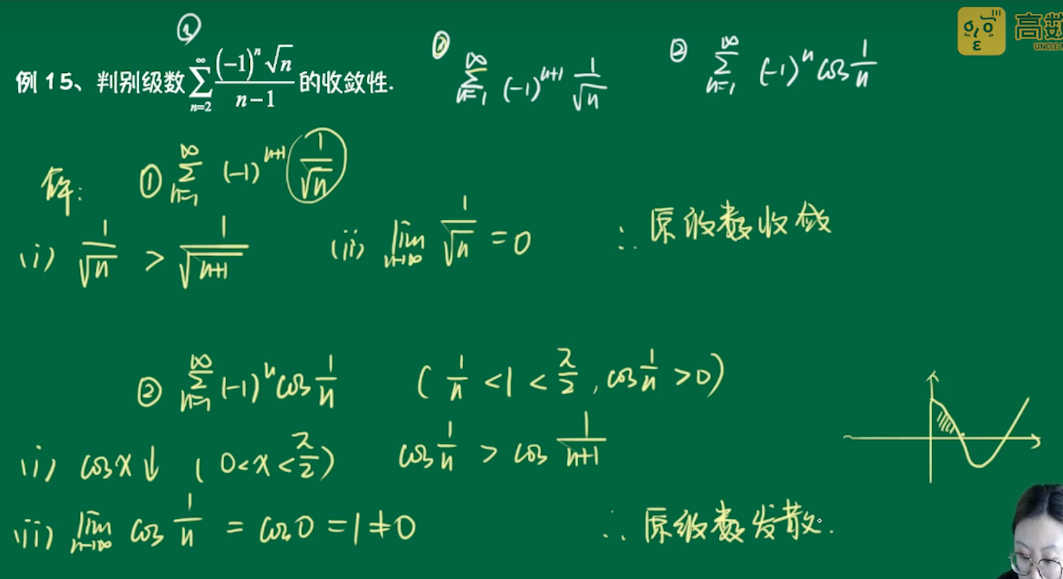 ③
例 15、判别级数 \sum_{n=2}^{\infty} \frac{(-1)^n \sqrt{n}}{n-1} 的收敛性.
① \sum_{n=1}^{\infty} (-1)^{n+1} \frac{1}{\sqrt{n}}
② \sum_{n=1}^{\infty} (-1)^n \cos\frac{1}{n}
高数
UNCLE
解: ① \sum_{n=1}^{\infty} (-1)^{n+1} \frac{1}{\sqrt{n}}
(i) \frac{1}{\sqrt{n}} > \frac{1}{\sqrt{n+1}} (ii) \lim_{n→∞} \frac{1}{\sqrt{n}} = 0 ∴原级数收敛
② \sum_{n=1}^{\infty} (-1)^n \cos\frac{1}{n} ( \frac{1}{n} < 1 < \frac{π}{2}, \cos\frac{1}{n} > 0 )
(i) cosx↓ ( 0<x<\frac{π}{2} ) \cos\frac{1}{n} > \cos\frac{1}{n+1}
(ii) \lim_{n→∞} \cos\frac{1}{n} = cos0 = 1 ≠ 0 ∴原级数发散.